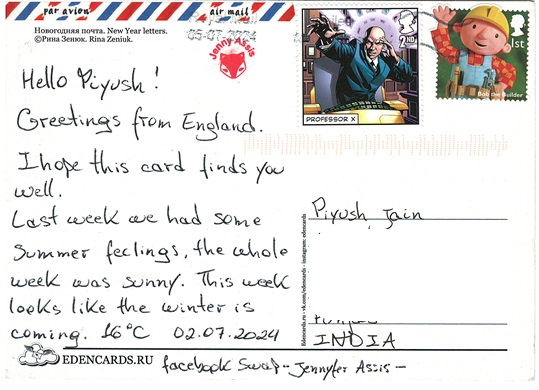 par avion
air mail
Новогодняя почта. New Year letters.
©Рина Зенюк. Rina Zeniuk.
05-07-2024
Jenny Assis
2ND
PROFESSOR X
1st
Bob the Builder
Hello Piyush!
Greetings from England.
I hope this card finds you
well.
Last week we had some
summer feelings, the whole
week was sunny. This week
looks like the winter is
coming. 16°C 02.07.2024
Piyush Jain
INDIA
Edencards.ru • vk.com/edencards • instagram: edencards
EDENCARDS.RU
facebook swap - Jennyfer Assis -